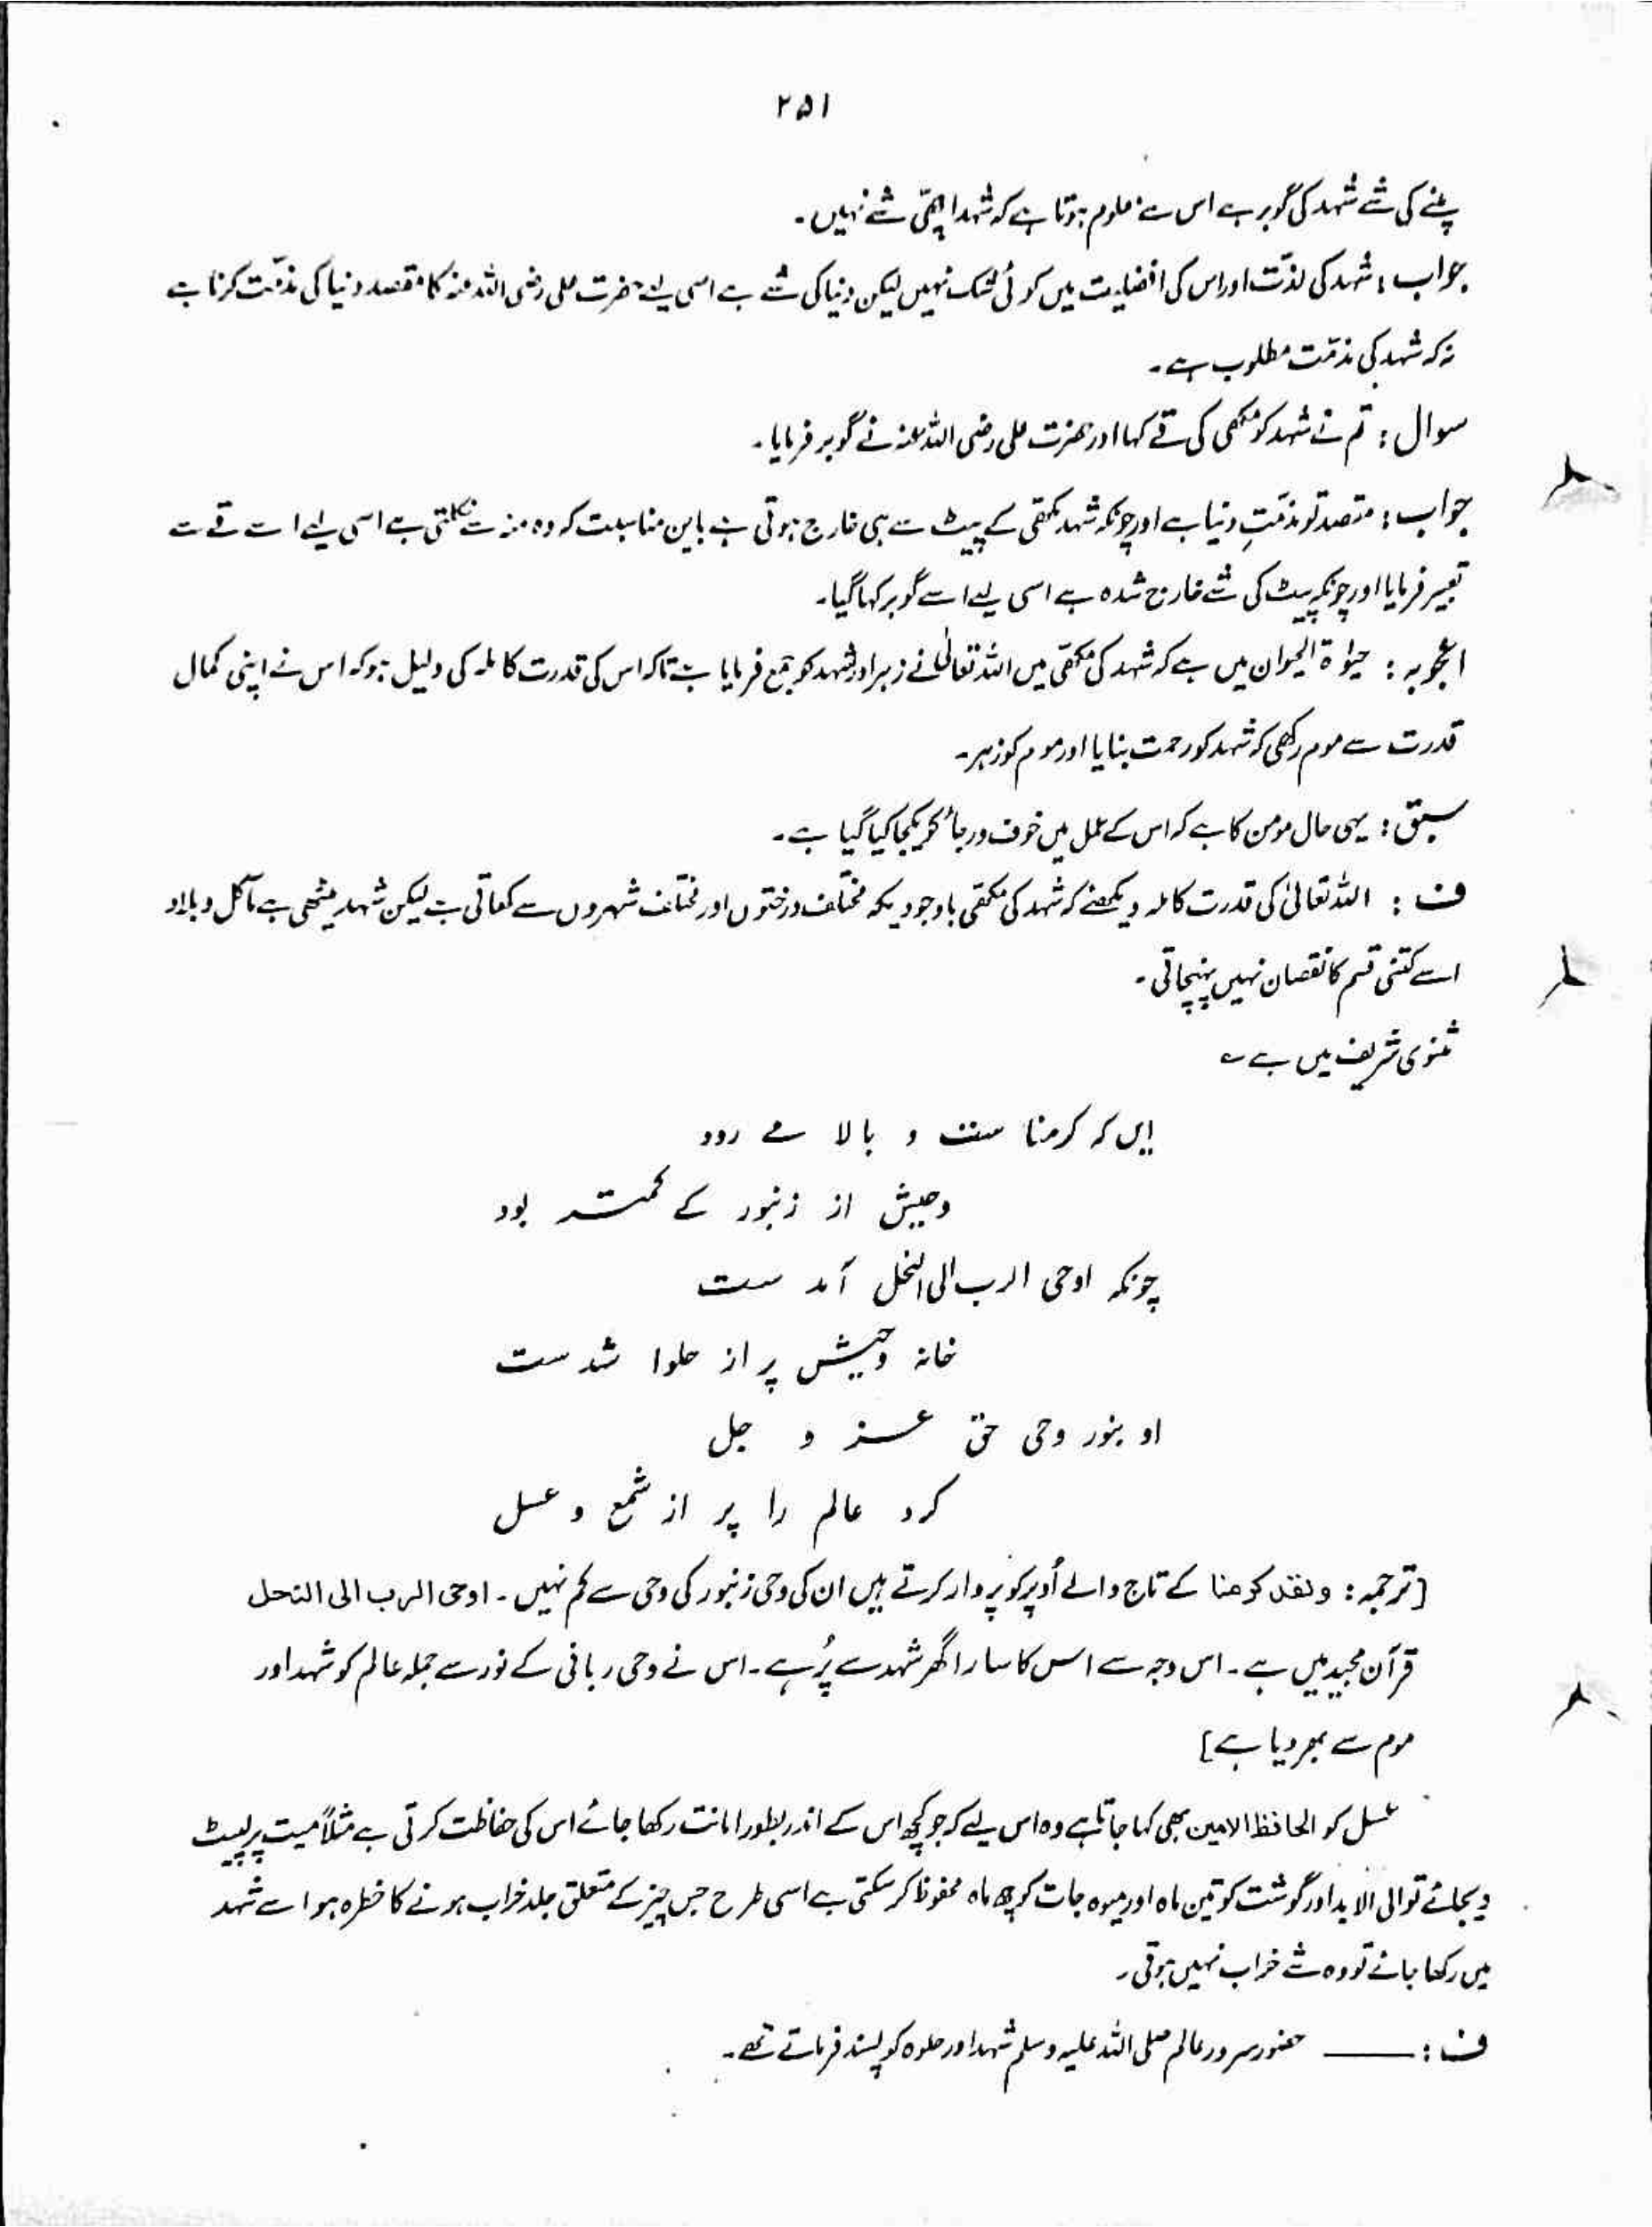 ۲۵۱
پینے کی شے شہد کی گوبر ہے اس سے معلوم ہوتا ہے کہ شہد اچھی شے نہیں۔
جواب : شہد کی لذّت اور اس کی افضلیت میں کوئی شک نہیں لیکن دنیا کی شے ہے اسی لیے حضرت علی رضی اللہ عنہ کا مقصد دنیا کی مذمّت کرنا ہے
نہ کہ شہد کی مذمّت مطلوب ہے۔
سوال : تم نے شہد کو مکھی کی قے کہا اور حضرت علی رضی اللہ عنہ نے گوبر فرمایا۔
جواب : مقصد تو مذمّتِ دنیا ہے اور چونکہ شہد مکھی کے پیٹ سے ہی خارج ہوتی ہے باین مناسبت کہ وہ منہ سے نکلتی ہے اسی لیے اسے قے سے
تعبیر فرمایا اور چونکہ پیٹ کی شے خارج شدہ ہے اسی لیے اسے گوبر کہا گیا۔
اعجوبہ : حیوٰۃ الحیوان میں ہے کہ شہد کی مکھّی میں اللہ تعالیٰ نے زہر اور شہد کو جمع فرمایا ہے تاکہ اس کی قدرت کاملہ کی دلیل ہو کہ اس نے اپنی کمال
قدرت سے موم رکھی کہ شہد کو رحمت بنایا اور موم کو زہر۔
سبق : یہی حال مومن کا ہے کہ اس کے عمل میں خوف و رجاء کو یکجا کیا گیا ہے۔
ف : اللہ تعالیٰ کی قدرت کاملہ دیکھئے کہ شہد کی مکھّی باوجودیکہ مختلف درختوں اور مختلف شہروں سے کھاتی ہے لیکن شہد میٹھی ہے مآکل و بلاد
اسے کتنی قسم کا نقصان نہیں پہنچاتی۔
مثنوی شریف میں ہے ؎
ایں کہ کرمنا ست و بالا مے رود
وحیش از زنبور کے کمتر بود
چونکہ اوحی الرب الی النحل آمد ست
خانہ وحیش پر از حلوا شد ست
او بنور وحی حق عز و جل
کرد عالم را پر از شمع و عسل
[ترجمہ : ولقد کرمنا کے تاج والے اُوپر کو پرواز کرتے ہیں ان کی وحی زنبور کی وحی سے کم نہیں۔ اوحی الرب الی النحل
قرآن مجید میں ہے۔ اس وجہ سے اس کا سارا گھر شہد سے پُر ہے۔ اس نے وحی ربانی کے نور سے جملہ عالم کو شہد اور
موم سے بھر دیا ہے]
عسل کو الحافظ الامین بھی کہا جاتا ہے وہ اس لیے کہ جو کچھ اس کے اندر بطور امانت رکھا جائے اس کی حفاظت کرتی ہے مثلاً میت پر لپیٹ
دیجائے تو الی الابد اور گوشت کو تین ماہ اور میوہ جات کو چھ ماہ محفوظ کر سکتی ہے اسی طرح جس چیز کے متعلق جلد خراب ہونے کا خطرہ ہو اسے شہد
میں رکھا جائے تو وہ شے خراب نہیں ہوتی۔
ف : ـــــ حضور سرور عالم صلی اللہ علیہ وسلم شہد اور حلوہ کو پسند فرماتے تھے۔